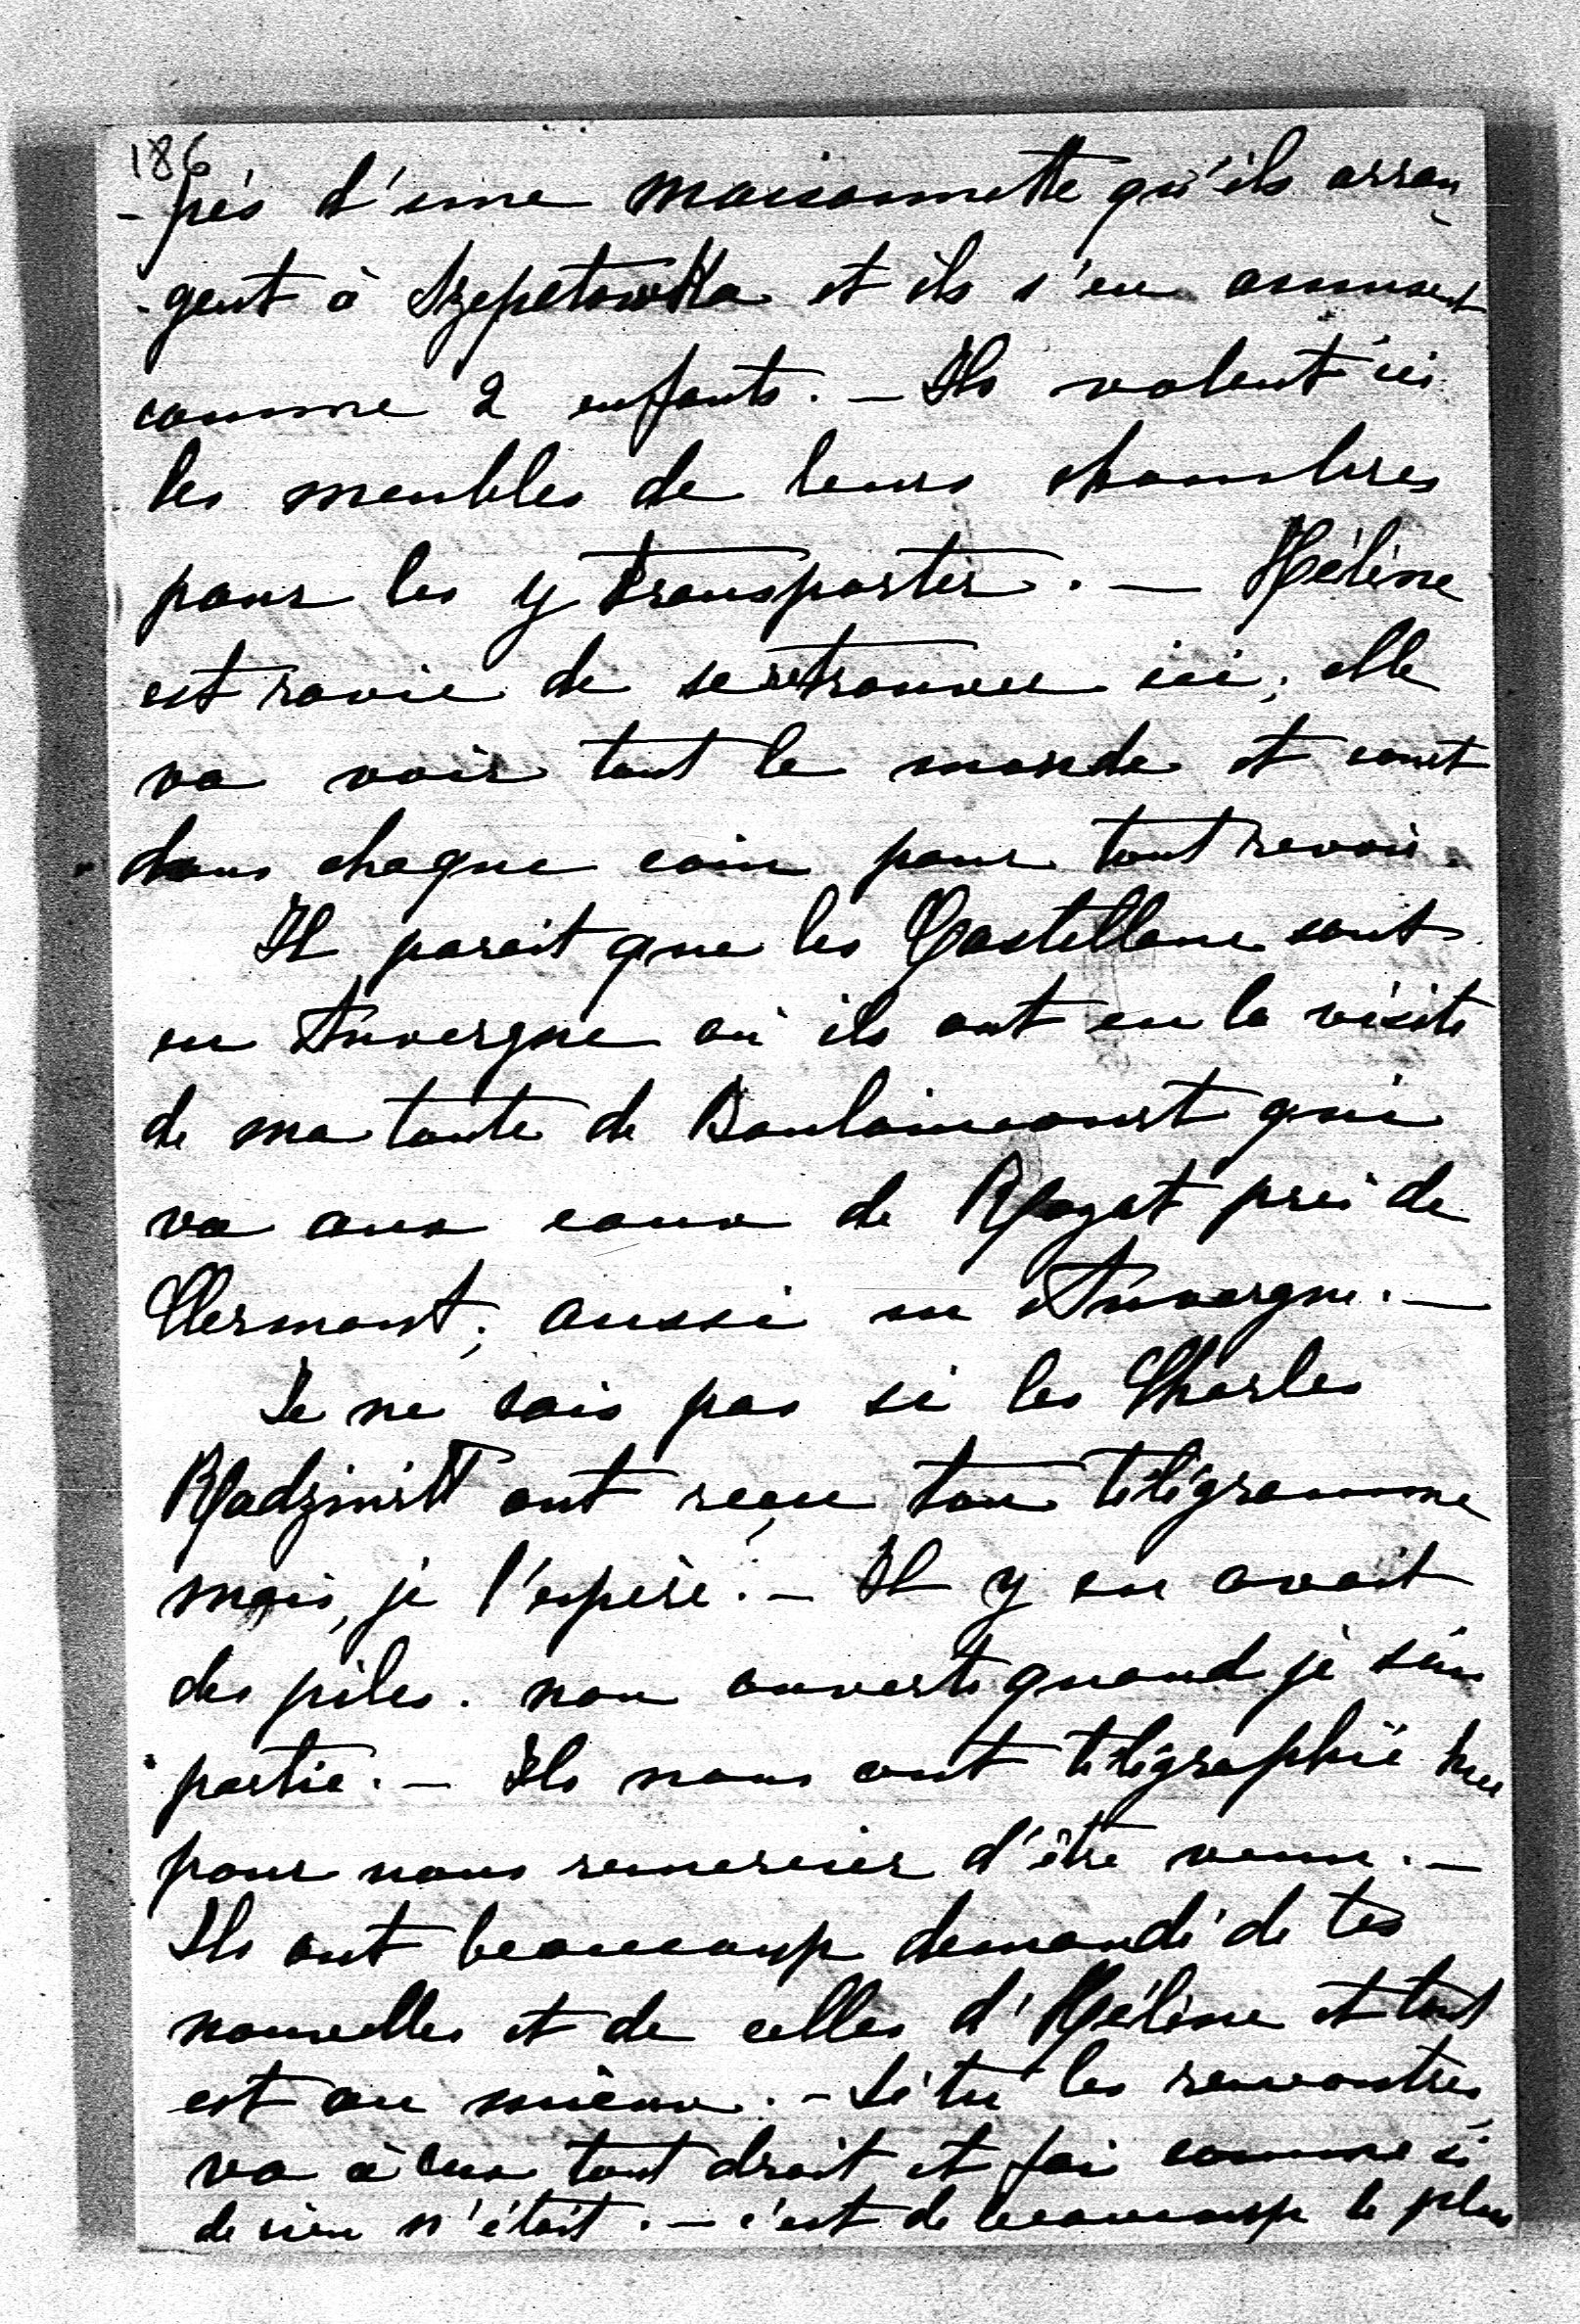 186
-pés d'une maisonnette qu'ils arran-
-gent à Szepetowka et ils s'en amusent
comme 2 enfants. — Ils volent ici
les meubles de leurs chambres
pour les y transporter. — Hélène
est ravie de se retrouver ici; elle
va voir tout le monde et court
dans chaque coin pour tout revoir.
Il parait que les Castellane sont
en Auvergne où ils ont eu la visite
de ma tante de Beaulaincourt qui
va aux eaux de Royat près de
Clermont; aussi en Auvergne. —
Je ne sais pas si les Charles
Radziwill ont reçu ton télégramme
mais, je l'espère. — Il y en avait
des piles non ouverts quand je suis
partie. — Ils nous ont télégraphié hier
pour nous remercier d'être venu. —
Ils ont beaucoup demandé de tes
nouvelles et de celles d'Hélène et tout
est au mieux. — Si tu les rencontres,
va à eux tout droit et fai comme si
de rien n'était. — c'est de beaucoup le plus